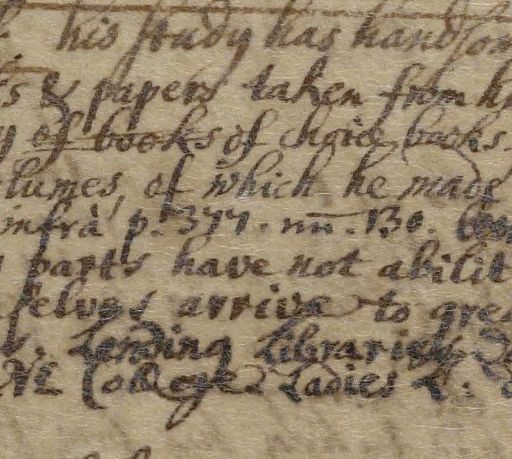 his study has handsom
& papers taken from h
of books of choice books.
lumes, of which he made
infrà p. 377. nu. 130.
parts have not abilit
selves arrive to gre
Lending Libraries
College Ladies